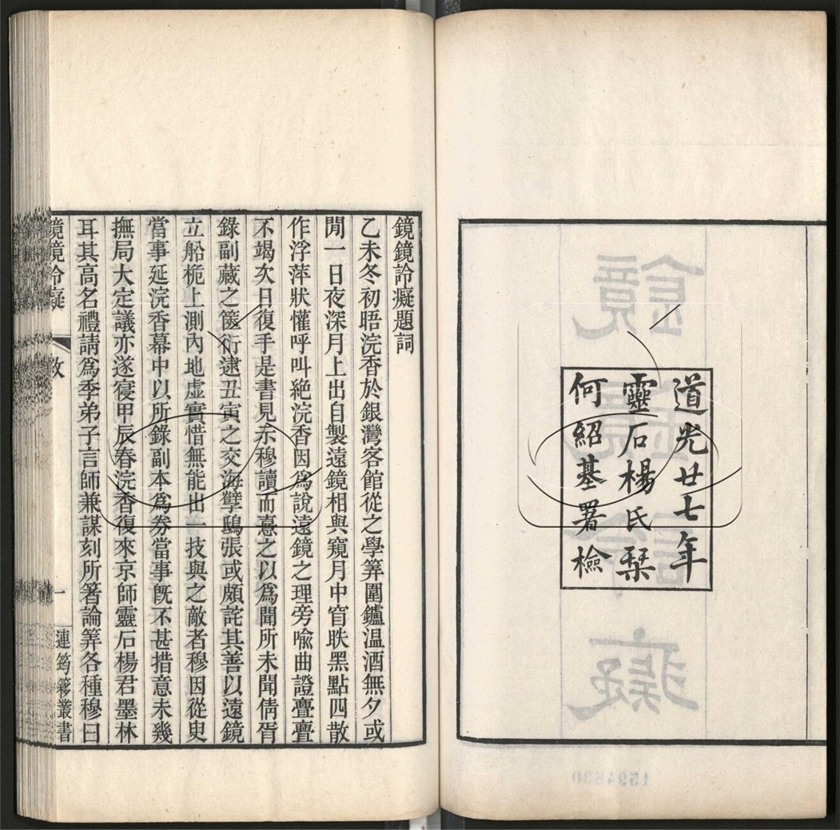 道光廿七年
靈石楊氏栞
何紹基署檢
鏡鏡詅癡題詞
乙未冬初晤浣香於銀灣客館從之學筭圍鑪温酒無夕或
閒一日夜深月上出自製遠鏡相與窺月中窅昳黑點四散
作浮萍狀懽呼叫絶浣香因爲說遠鏡之理旁喻曲證亹亹
不竭次日復手是書見示穆讀而憙之以爲聞所未聞倩胥
錄副藏之篋衍逮丑寅之交海孽鴟張或頗詫其善以遠鏡
立船桅上測內地虛實惜無能出一技與之敵者穆因從史
當事延浣香幕中以所錄副本爲券當事旣不甚措意未幾
撫局大定議亦遂寑甲辰春浣香復來京師靈石楊君墨林
耳其高名禮請爲季弟子言師兼謀刻所箸論筭各種穆曰
鏡鏡詅癡 一 連筠簃叢書